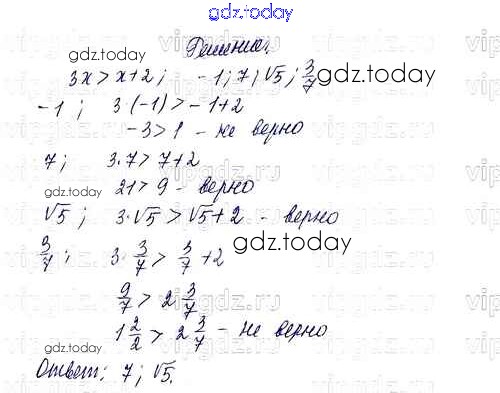 gdz.today
gdz.today Решение:
3x > x+2; -1; 7; √5; 3/7 gdz.today
-1; 3·(-1) > -1+2
-3 > 1 - не верно
7; 3·7 > 7+2
gdz.today 21 > 9 - верно
√5; 3·√5 > √5+2 - верно
3/7; 3·3/7 > 3/7+2 gdz.today
9/7 > 2 3/7
1 2/2 > 2 3/7 - не верно
gdz.today
Ответ: 7; √5.